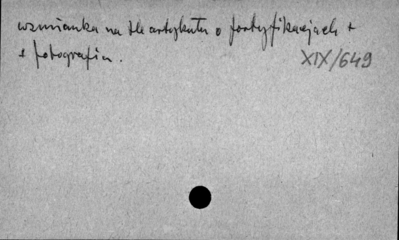 wzmianka na tle artykułu o fortyfikacjach +
+ fotografia.
XIX/649